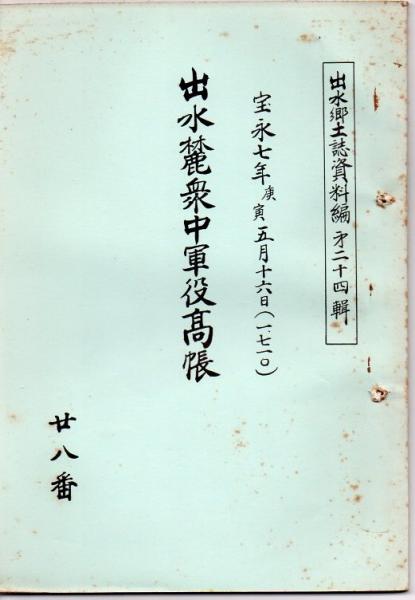 出水郷土誌資料編 才二十四輯
宝永七年庚寅五月十六日(一七一〇)
出水麓衆中軍役高帳
廿八番